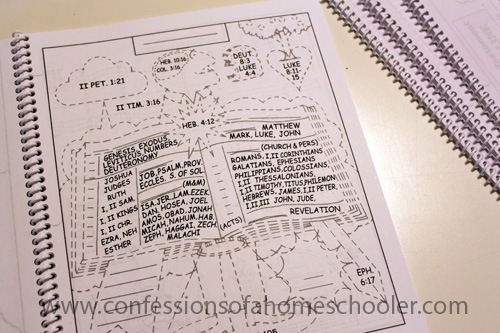 HEB. 10:16
COL. 3:16
DEUT.
8:3
LUKE
4:4
LUKE
8:11-
15
II PET. 1:21
II TIM. 3:16
HEB. 4:12
GENESIS, EXODUS,
LEVITICUS, NUMBERS,
DEUTERONOMY
JOSHUA
JUDGES
RUTH
I, II SAM.
I, II KINGS
I, II CHR.
EZRA, NEH
ESTHER
JOB, PSALM, PROV.
ECCLES. S. OF SOL.
(M&M)
ISA, JER, LAM, EZEK.
DAN, HOSEA, JOEL
AMOS, OBAD, JONAH
MICAH, NAHUM, HAB.
ZEPH, HAGGAI, ZECH,
MALACHI
MATTHEW
MARK, LUKE, JOHN
(CHURCH & PERS)
ROMANS, I,II CORINTHIANS
GALATIANS, EPHESIANS
PHILIPPIANS, COLOSSIANS,
I,II THESSALONIANS,
I,II TIMOTHY, TITUS, PHILEMON
HEBREWS, JAMES, I,II PETER,
I,II,III JOHN, JUDE,
REVELATION
(ACTS)
EPH.
6:17
www.confessionsofahomeschooler.com